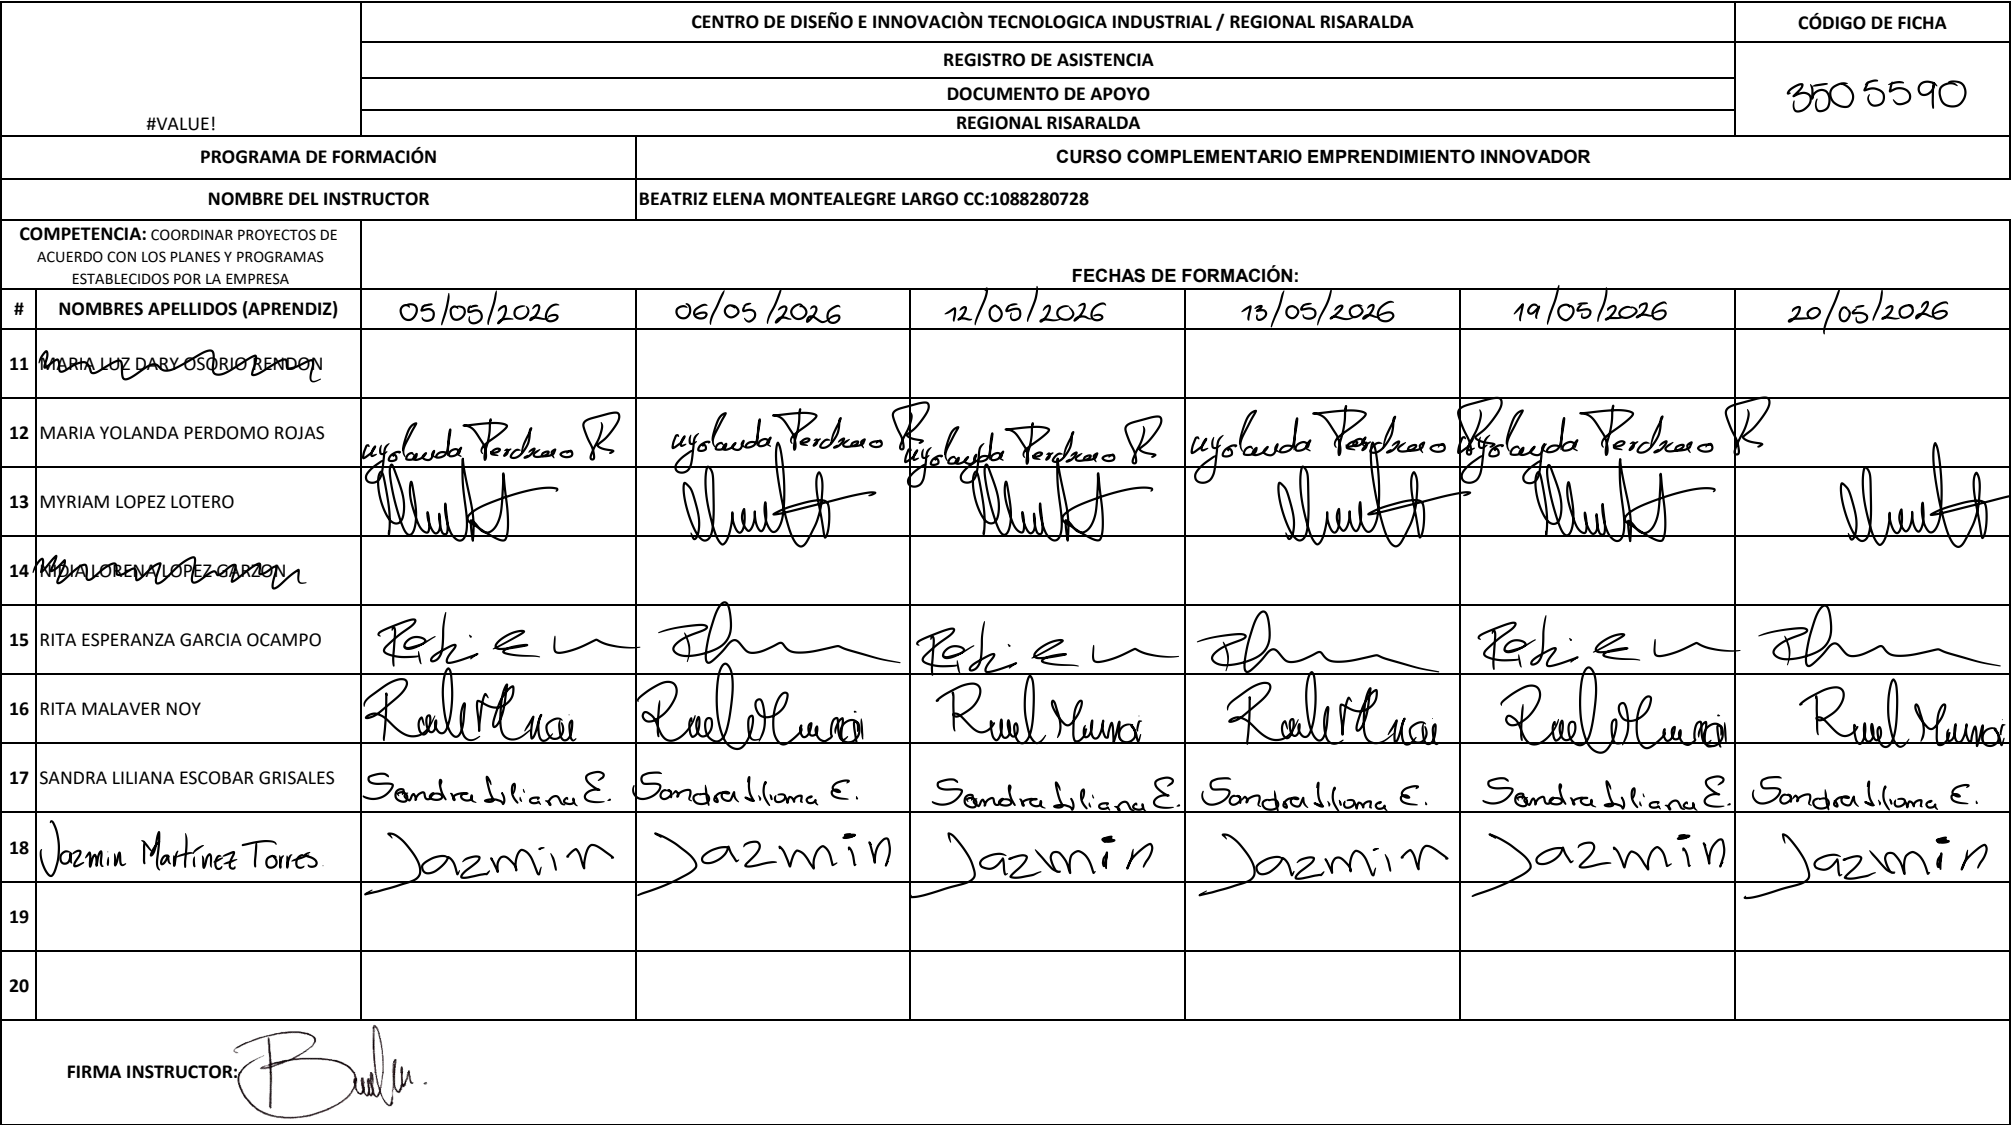 CENTRO DE DISEÑO E INNOVACIÒN TECNOLOGICA INDUSTRIAL / REGIONAL RISARALDA
CÓDIGO DE FICHA
REGISTRO DE ASISTENCIA
DOCUMENTO DE APOYO
3505590
#VALUE!
REGIONAL RISARALDA
PROGRAMA DE FORMACIÓN
CURSO COMPLEMENTARIO EMPRENDIMIENTO INNOVADOR
NOMBRE DEL INSTRUCTOR
BEATRIZ ELENA MONTEALEGRE LARGO CC:1088280728
COMPETENCIA: COORDINAR PROYECTOS DE
ACUERDO CON LOS PLANES Y PROGRAMAS
ESTABLECIDOS POR LA EMPRESA
FECHAS DE FORMACIÓN:
# NOMBRES APELLIDOS (APRENDIZ) 05/05/2026 06/05/2026 12/05/2026 13/05/2026 19/05/2026 20/05/2026
11 MARIA LUZ DARY OSORIO RENDON
12 MARIA YOLANDA PERDOMO ROJAS
13 MYRIAM LOPEZ LOTERO
14 NIDIA LORENA LOPEZ GARZON
15 RITA ESPERANZA GARCIA OCAMPO
16 RITA MALAVER NOY
17 SANDRA LILIANA ESCOBAR GRISALES Sandra Liliana E. Sandra Liliana E. Sandra Liliana E. Sandra Liliana E. Sandra Liliana E. Sandra Liliana E.
18 Jazmin Martínez Torres. Jazmin Jazmin Jazmin Jazmin Jazmin Jazmin
19
20
FIRMA INSTRUCTOR: